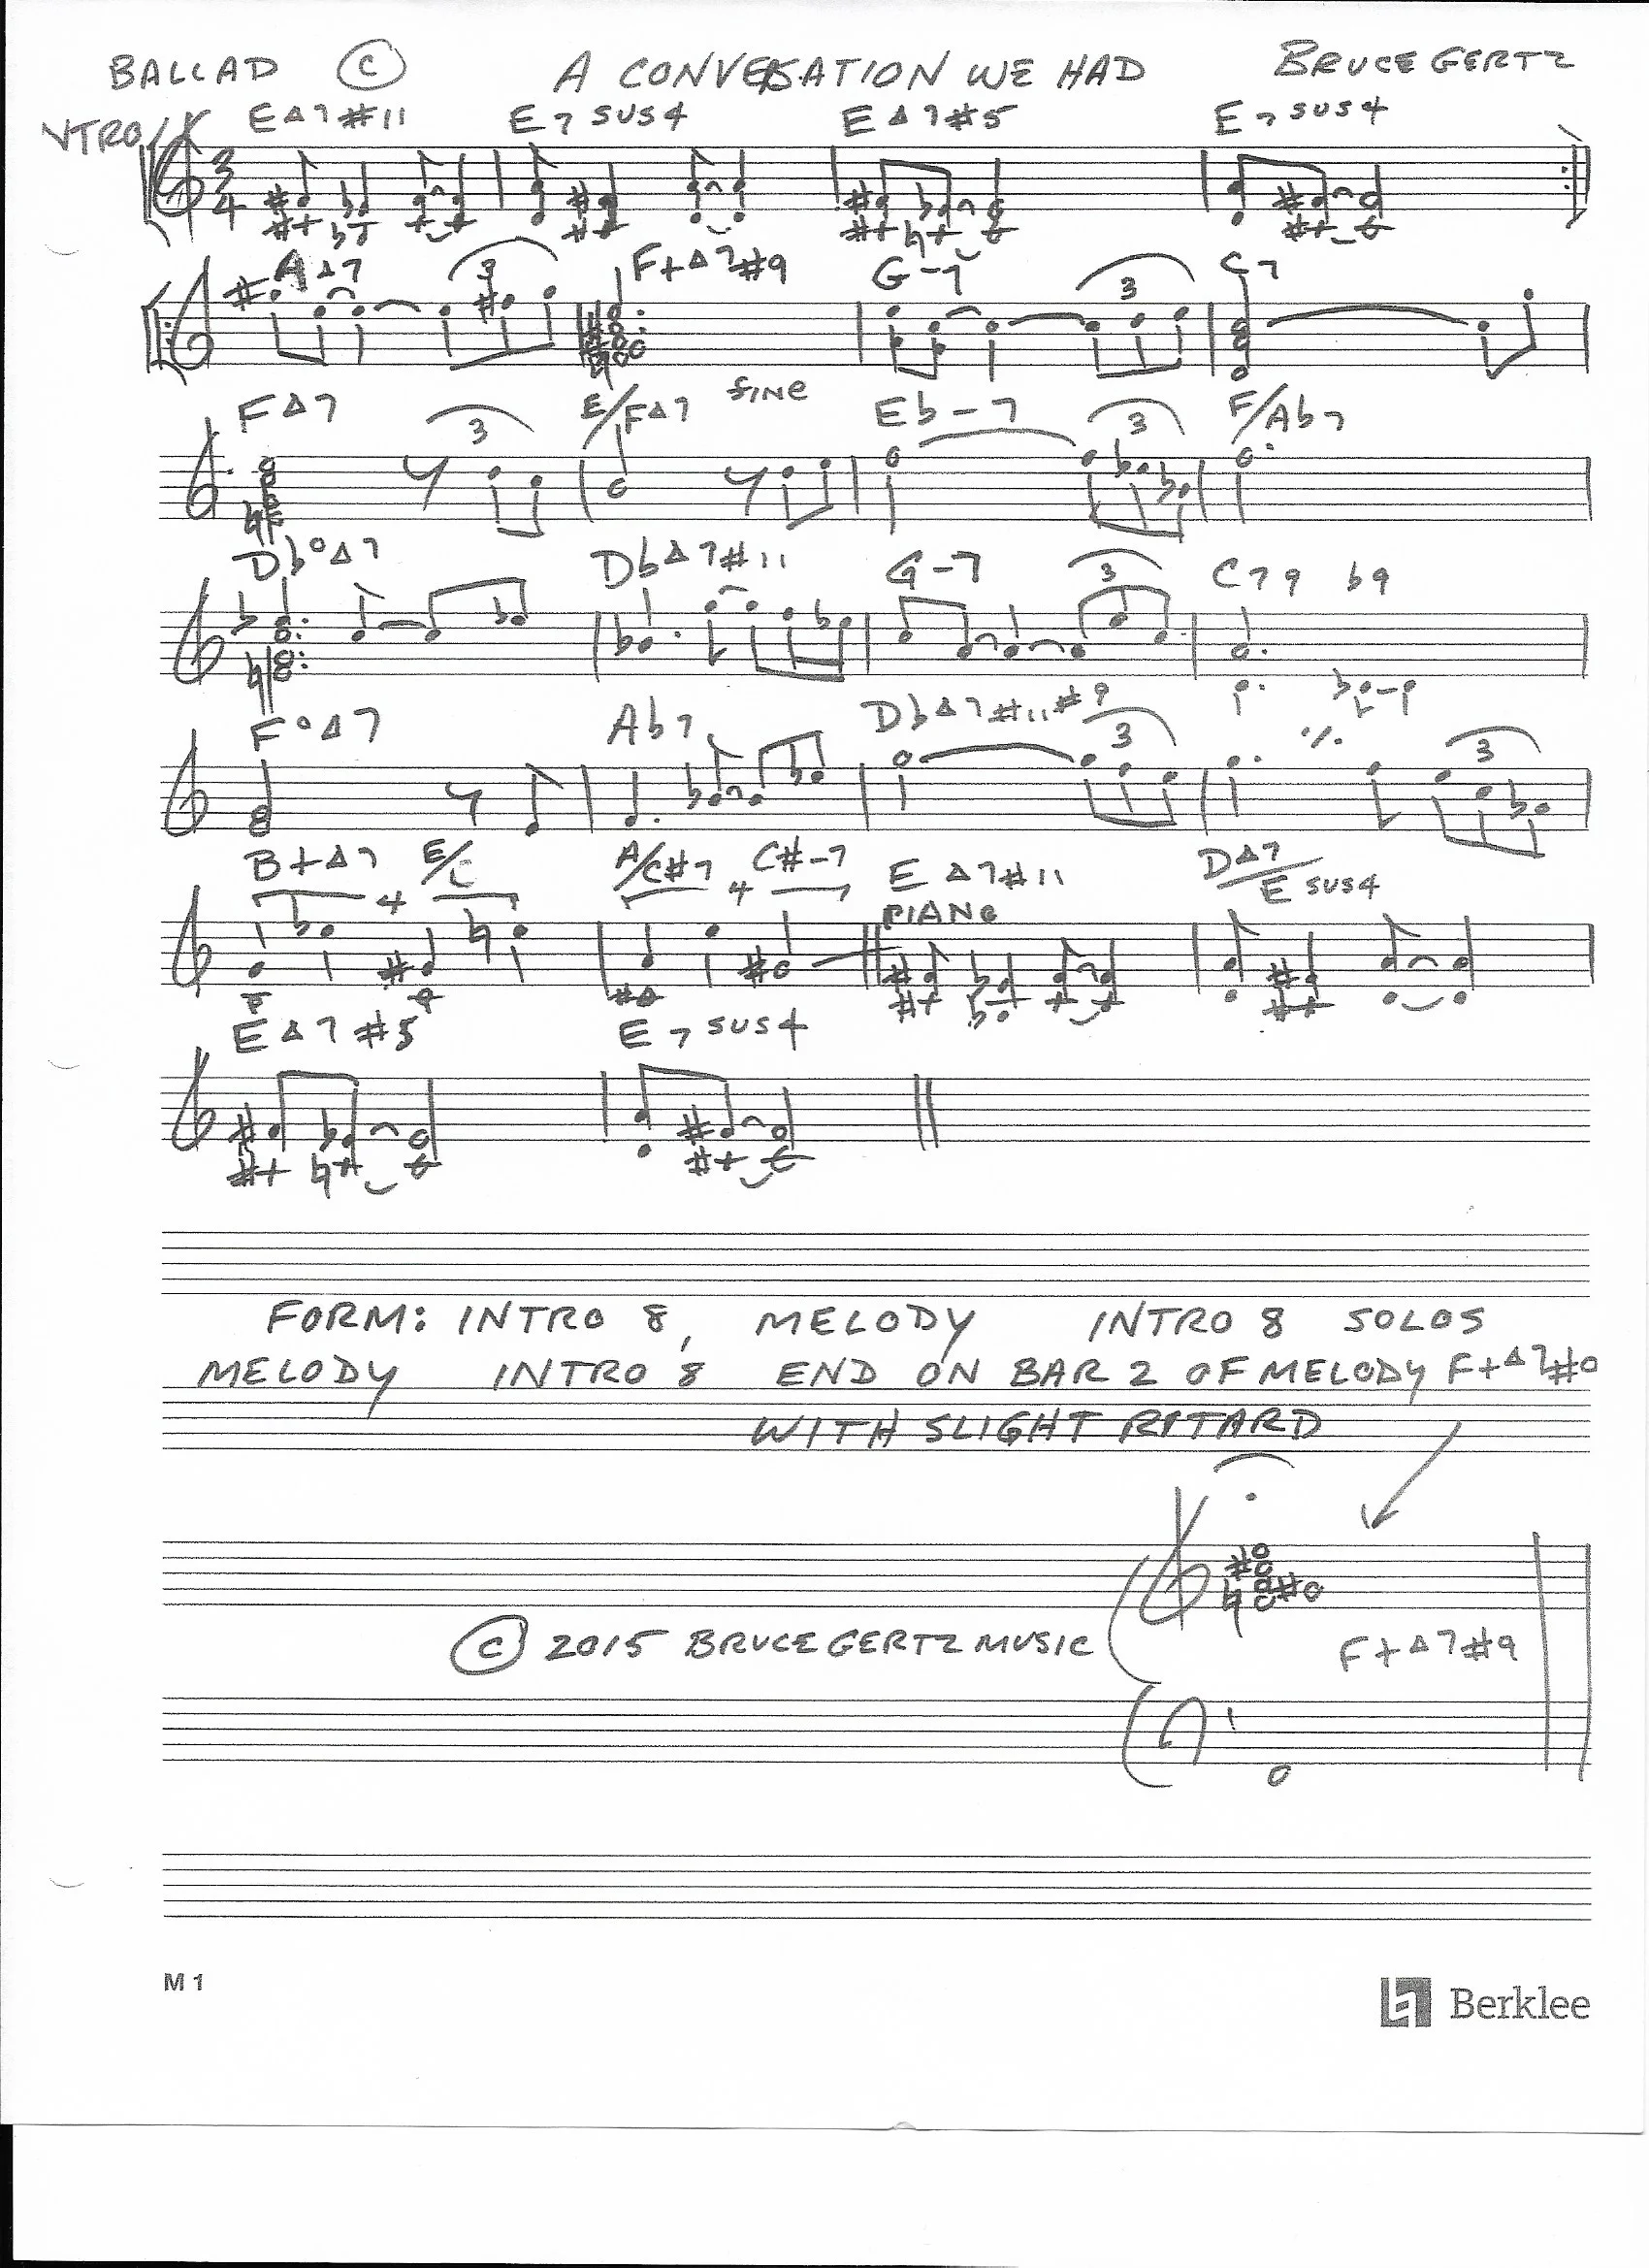 BALLAD © A CONVERSATION WE HAD BRUCE GERTZ
NTRO EΔ7#11 E7sus4 EΔ7#5 E7sus4
3
4
AΔ7 3 F+Δ7#9 G-7 3 C7
fine
FΔ7 3 E/FΔ7 Eb-7 3 F/Ab7
Db°Δ7 DbΔ7#11 G-7 3 C79 b9
F°Δ7 Ab7 DbΔ7#11#9 3 ٪ 3
B+Δ7 4 E/C A/C#7 4 C#-7 EΔ7#11 DΔ7/E sus4
PIANO
EΔ7#5 E7sus4
FORM: INTRO 8, MELODY INTRO 8 SOLOS
MELODY INTRO 8 END ON BAR 2 OF MELODY F+Δ7#9
WITH SLIGHT RITARD
© 2015 BRUCE GERTZ MUSIC
F+Δ7#9
M 1
Berklee